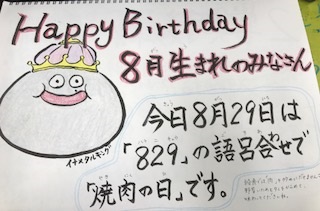 Happy Birthday
8月生まれのみなさん
イナメタルキング
今日8月29日は
「829」の語呂合せで
「焼肉の日」です。